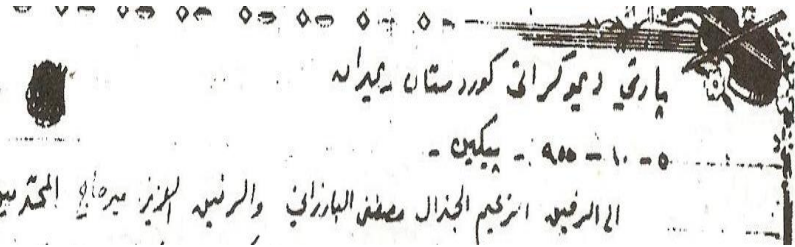 پارتي ديموكراتى كوردستان ـ ئيران
٥ - ١٠ - ٩٥٥ - پيكين -
الى الرفيق الزعيم الجنرال مصطفى البارزاني والرفيق العزيز ميرحاج المحترمين